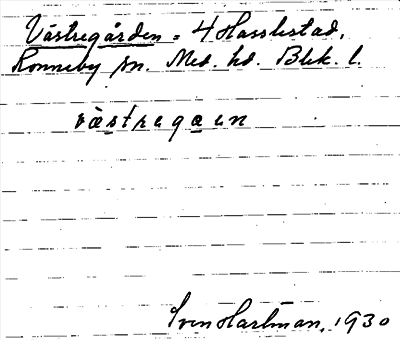 Västregården = 4 Hasslestad,
Ronneby sn. Med. hd. Blek. l.
västregaen
Sven Hartman, 1930